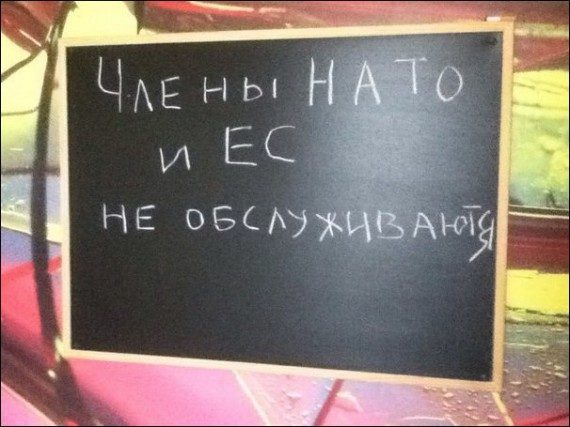 Члены НАТО
и ЕС
не обслуживаются